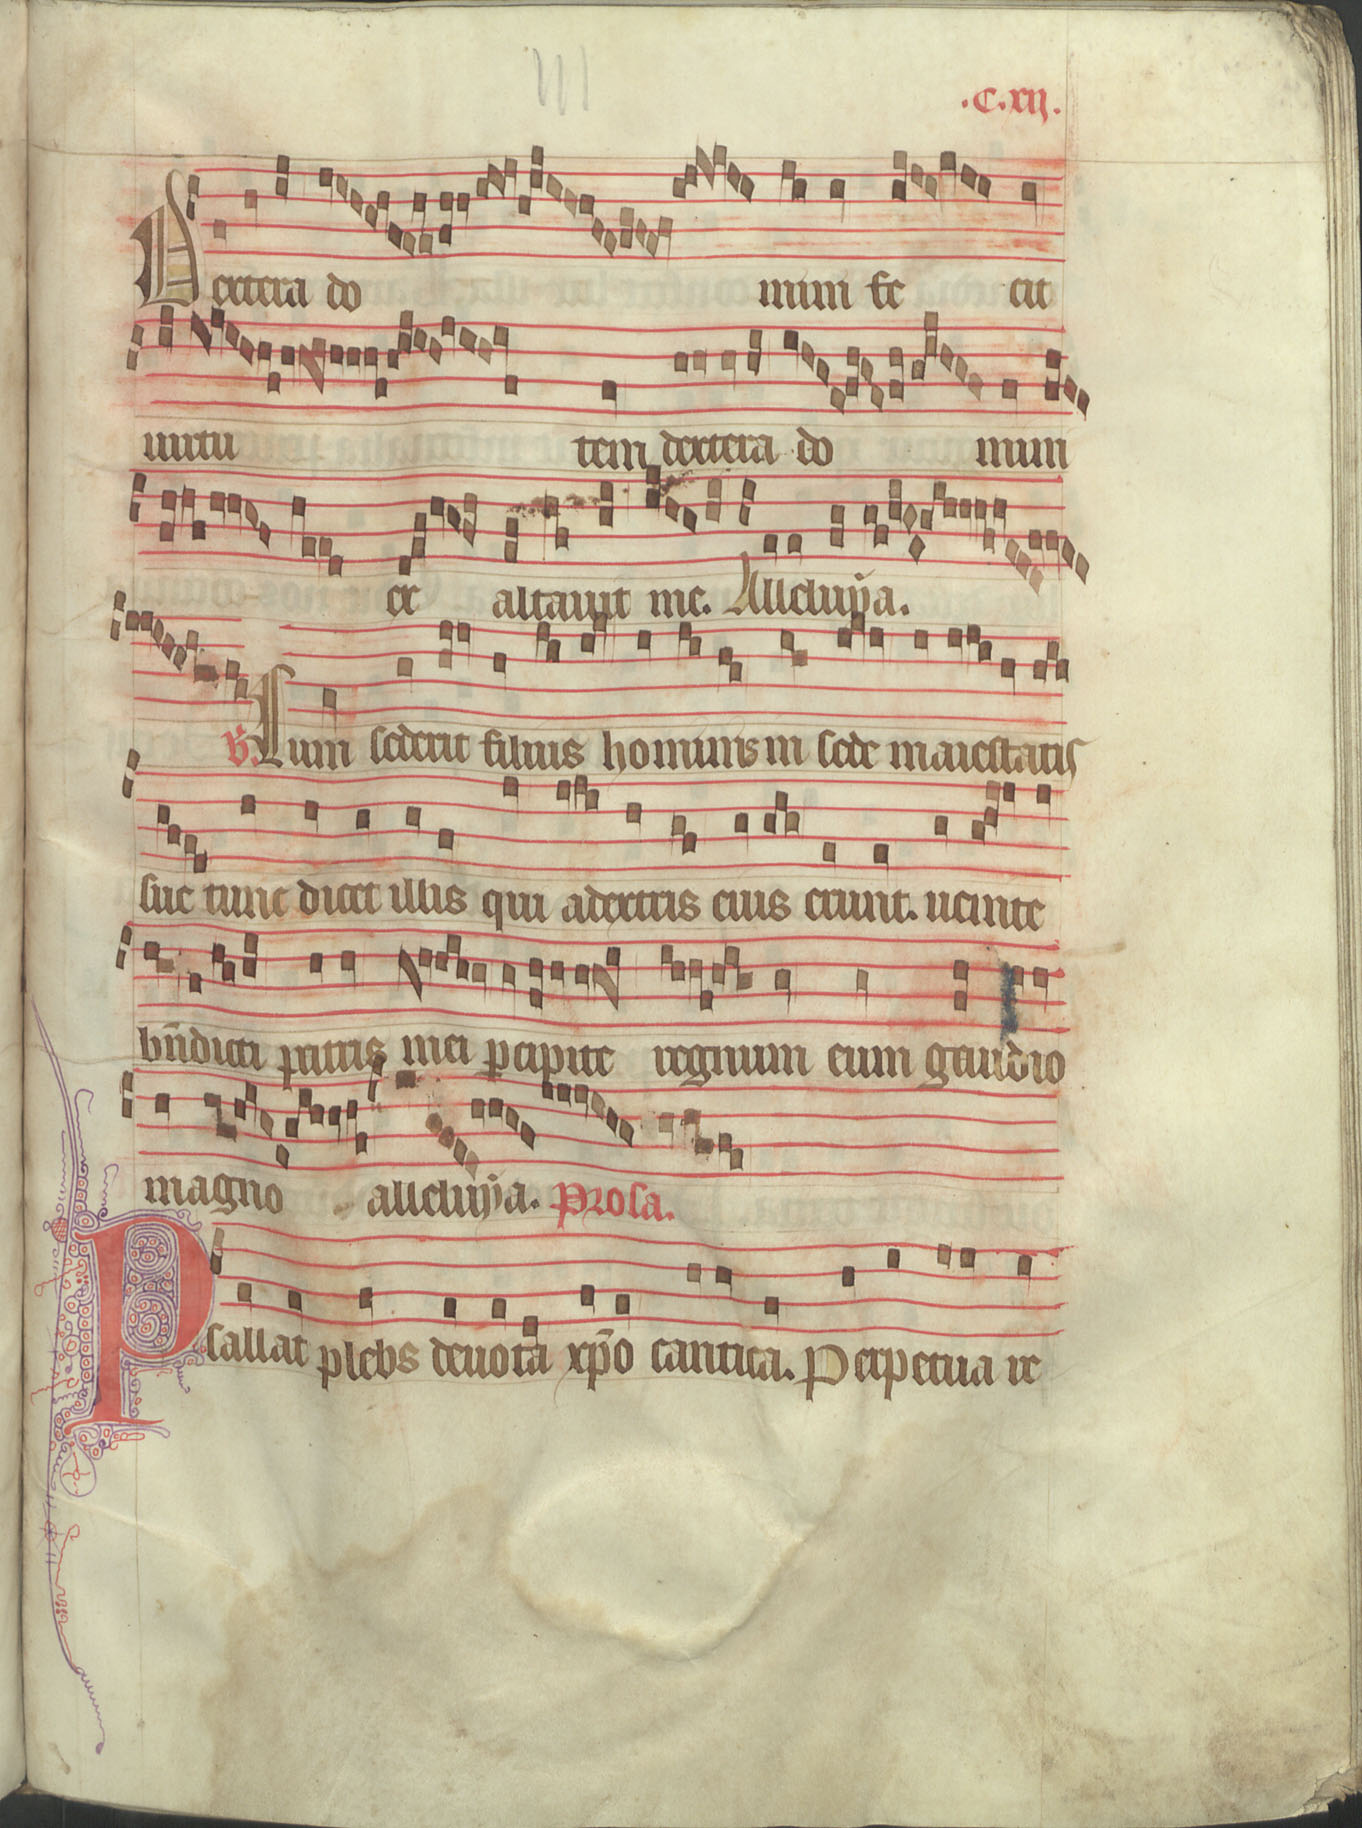 111
.C.xii.
Dextera do mini fe cit
uirtu tem dextera do mini
ex altauit me. Alleluya.
V. Cum sederit filius hominis in sede maiestatis
sue tunc dicet illis qui adextris eius erunt. uenite
bn̄dicti patris mei ꝑcipite regnum cum gaudio
magno alleluya. Prosa.
Psallat plebs deuota xp̄o cantica. Perpetua re